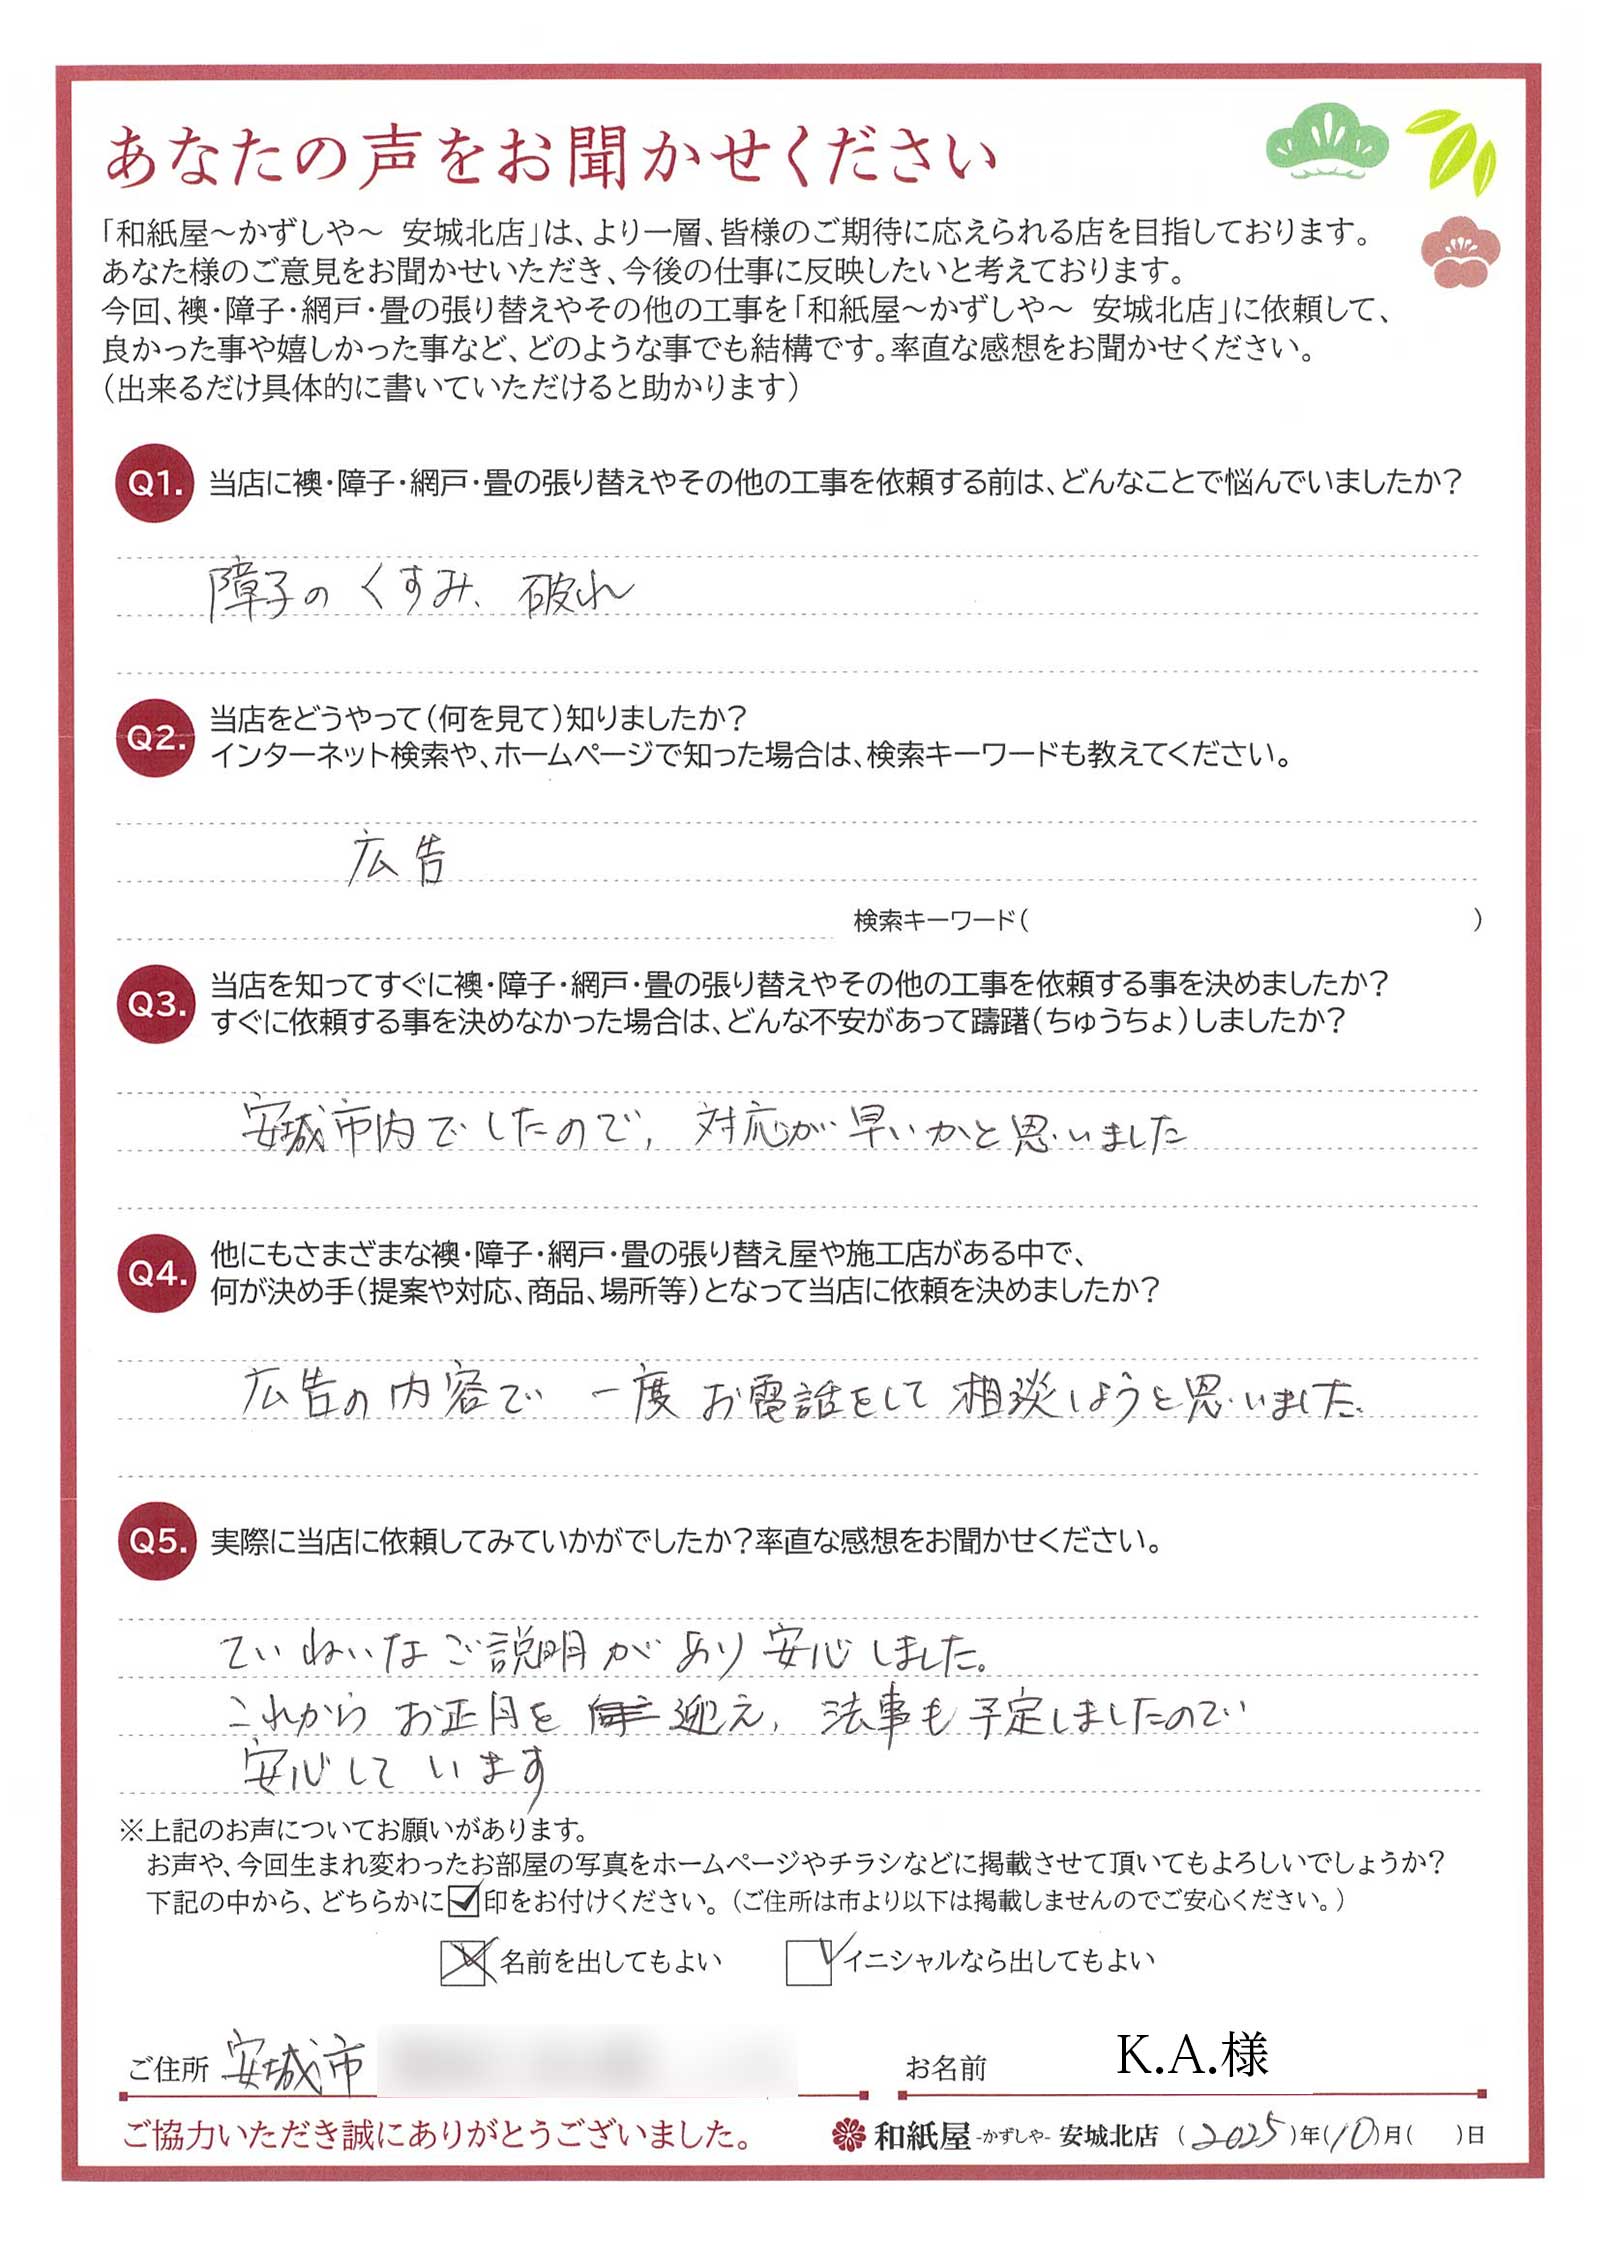 あなたの声をお聞かせください
「和紙屋～かずしや～ 安城北店」は、より一層、皆様のご期待に応えられる店を目指しております。
あなた様のご意見をお聞かせいただき、今後の仕事に反映したいと考えております。
今回、襖・障子・網戸・畳の張り替えやその他の工事を「和紙屋～かずしや～ 安城北店」に依頼して、
良かった事や嬉しかった事など、どのような事でも結構です。率直な感想をお聞かせください。
（出来るだけ具体的に書いていただけると助かります）
Q1. 当店に襖・障子・網戸・畳の張り替えやその他の工事を依頼する前は、どんなことで悩んでいましたか？
障子のくすみ、破れ
Q2. 当店をどうやって（何を見て）知りましたか？
インターネット検索や、ホームページで知った場合は、検索キーワードも教えてください。
広告
検索キーワード（ ）
Q3. 当店を知ってすぐに襖・障子・網戸・畳の張り替えやその他の工事を依頼する事を決めましたか？
すぐに依頼する事を決めなかった場合は、どんな不安があって躊躇（ちゅうちょ）しましたか？
安城市内でしたので、対応が早いかと思いました
Q4. 他にもさまざまな襖・障子・網戸・畳の張り替え屋や施工店がある中で、
何が決め手（提案や対応、商品、場所等）となって当店に依頼を決めましたか？
広告の内容で 一度お電話をして相談しようと思いました.
Q5. 実際に当店に依頼してみていかがでしたか？率直な感想をお聞かせください。
ていねいなご説明があり安心しました。
これからお正月を迎え、法事も予定しましたので
安心しています
※上記のお声についてお願いがあります。
お声や、今回生まれ変わったお部屋の写真をホームページやチラシなどに掲載させて頂いてもよろしいでしょうか？
下記の中から、どちらかに☑印をお付けください。（ご住所は市より以下は掲載しませんのでご安心ください。）
名前を出してもよい イニシャルなら出してもよい
ご住所 安城市 お名前 K.A.様
ご協力いただき誠にありがとうございました。 和紙屋 -かずしや- 安城北店 （2025）年（10）月（ ）日